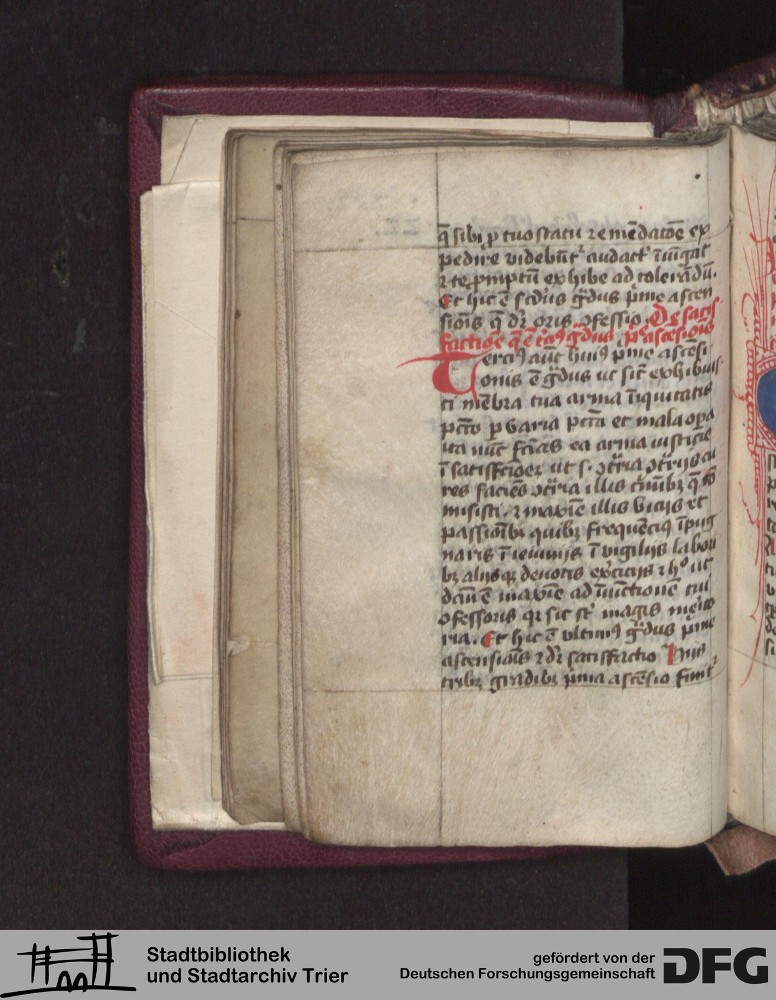 q̄ sibi ꝓ tuo statu ⁊ emēdacōe ex
pedire videbūt᷑ audact᷑ īiūgat
⁊ te ꝓmptū exhibe ad tolerādū.
Et hic ē scd̄us gͣdus pͥme ascen
sionis q̄ dr̄ oris ꝯfessio. De satis
factiōe q̄ ē t̄cius gͣdus pͥ ascēsionis
Tercius aūt huiꝰ pͥme ascēsi
onis ē gͣdus ut sic̄ exhibuis
ti mēbra tua arma īiquitatis
pctō ꝑ varia pctā et mala oꝑa
ita nūc faciās ea arma iusticie
ī satisfcīōeꝫ ut s. ꝯtͣria ꝯtͣrijs cu
res faciēs ꝯtͣria illis
misisti. ⁊ maxīe illis vicijs et
passionibꝫ quibꝫ frequēciꝰ īpug
naris ī ieiunijs ī vigilijs labori
bꝫ alijsqꝫ deuotis exͨicijs ⁊ hͦ ut
dcm̄ ē maxīe ad īiūctionē tui
ꝯfessoris qr sic st̄ magis mēito
ria. Et hic ē vltimꝰ gͣdus pͥme
ascensionis ⁊ dr̄ satisfactio Hijs
tribꝫ gradibꝫ pͥma ascēsio finit᷑
Stadtbibliothek
und Stadtarchiv Trier
gefördert von der
Deutschen Forschungsgemeinschaft
DFG